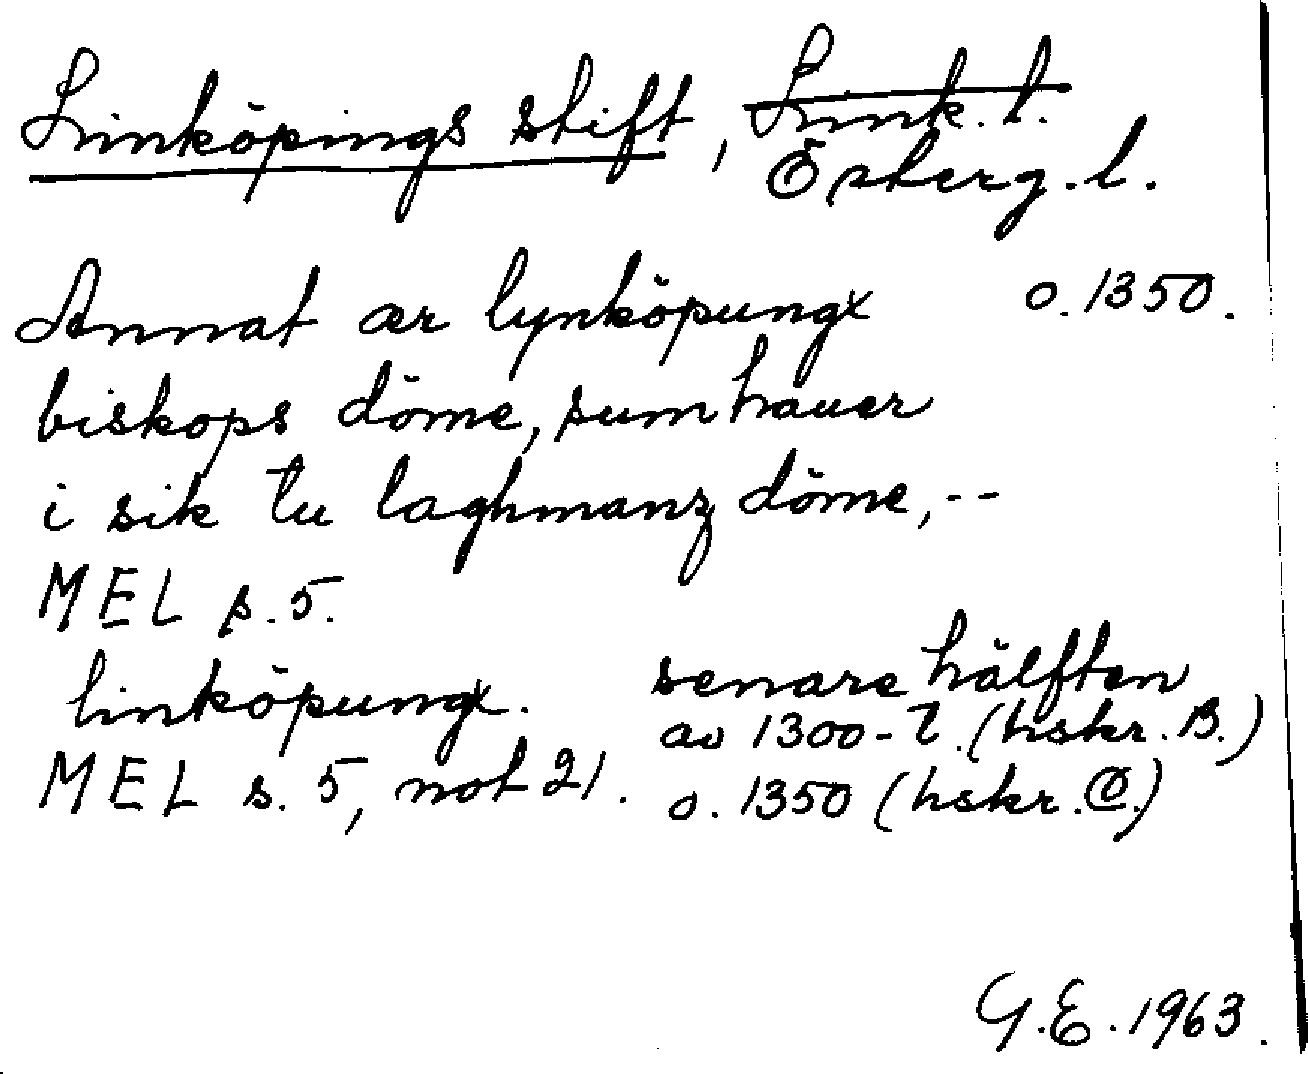 Linköpings stift, Link. l.
Österg. l.
Annat ær lynköpungx o. 1350.
biskops döme, sum hauer
i sik tu laghmanz döme, --
MEL s. 5.
linköpungx. senare hälften
av 1300-t. (hskr. B.)
MEL s. 5, not 21. o. 1350 (hskr. C.)
G.E. 1963.